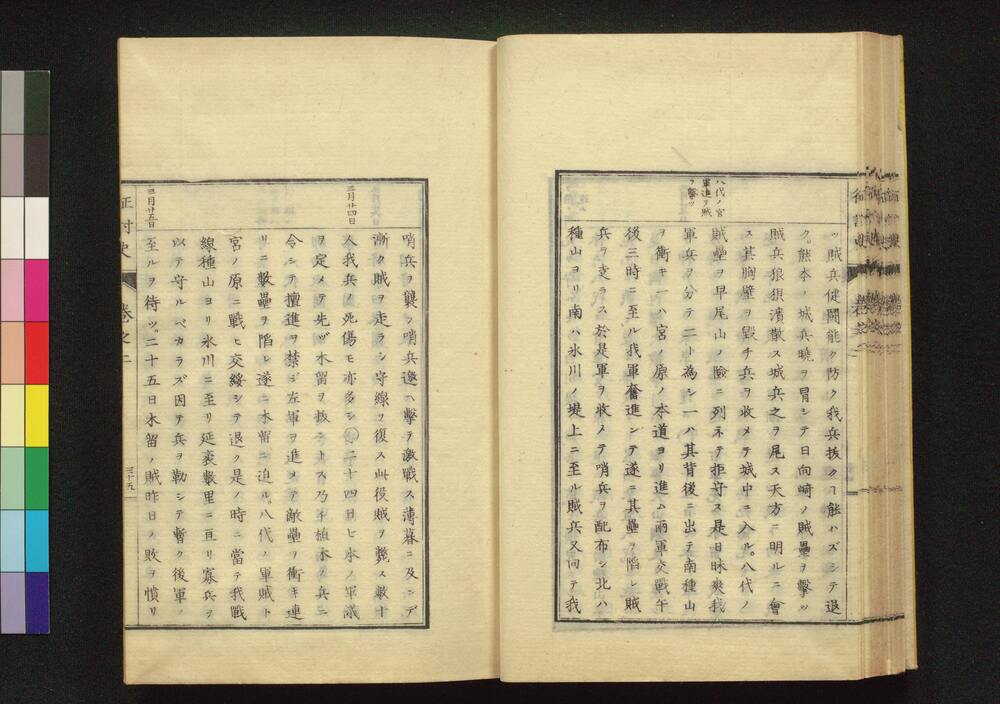 ッ賊兵健闘能ク防ク我兵抜クヿ能ハズシテ退
ク。熊本ノ城兵暁ヲ冒シテ日向崎ノ賊塁ヲ撃ツ
賊兵狼狽潰散ス城兵之ヲ尾ス天方ニ明ルニ會
ス其胸壁ヲ毀チ兵ヲ收メテ城中ニ入ル。八代ノ
賊塁ヲ早尾山ノ險ニ列子テ拒守ス是日昧爽我
軍兵ヲ分テ二ト為シ一ハ其背後ニ出テ南種山
ヲ衝キ一ハ宮ノ原ノ本道ヨリ進ム兩軍交戰午
後三時ニ至ル我軍奮進シテ遂ニ其壘ヲ陷レ賊
兵ヲ走ラス於是軍ヲ收メテ哨兵ヲ配布シ北ハ
種山ヨリ南ハ氷川ノ堤上ニ至ル賊兵又向テ我
八代ノ官
軍進テ賊
ヲ撃ツ
哨兵ヲ襲フ哨兵邀ヘ擊テ激戰ス薄暮ニ及ンデ
漸ク賊ヲ走ラシ守線ヲ復ス此役賊ヲ斃ス數十
人我兵ノ死傷モ亦多シ○二十四日七本ノ軍議
ヲ定メテ先ヅ木留ヲ抜カントス乃チ植木ノ兵ニ
令シテ擅進ヲ禁ジ左軍ヲ進メテ敵壘ヲ衝キ連
リニ數壘ヲ陷レ遂ニ木留ニ迫ル。八代ノ軍賊ト
宮ノ原ニ戰ヒ交綏シテ退ク是ノ時ニ當テ我戰
線種山ヨリ氷川ニ至リ延袤數里ニ亘リ寡兵ヲ
以テ守ルベカラズ因テ兵ヲ勒シテ暫ク後軍ノ
至ルヲ待ツ。二十五日木留ノ賊昨日ノ敗ヲ憤リ
三月廿四日
三月廿五日
征討史
卷之二
三十五